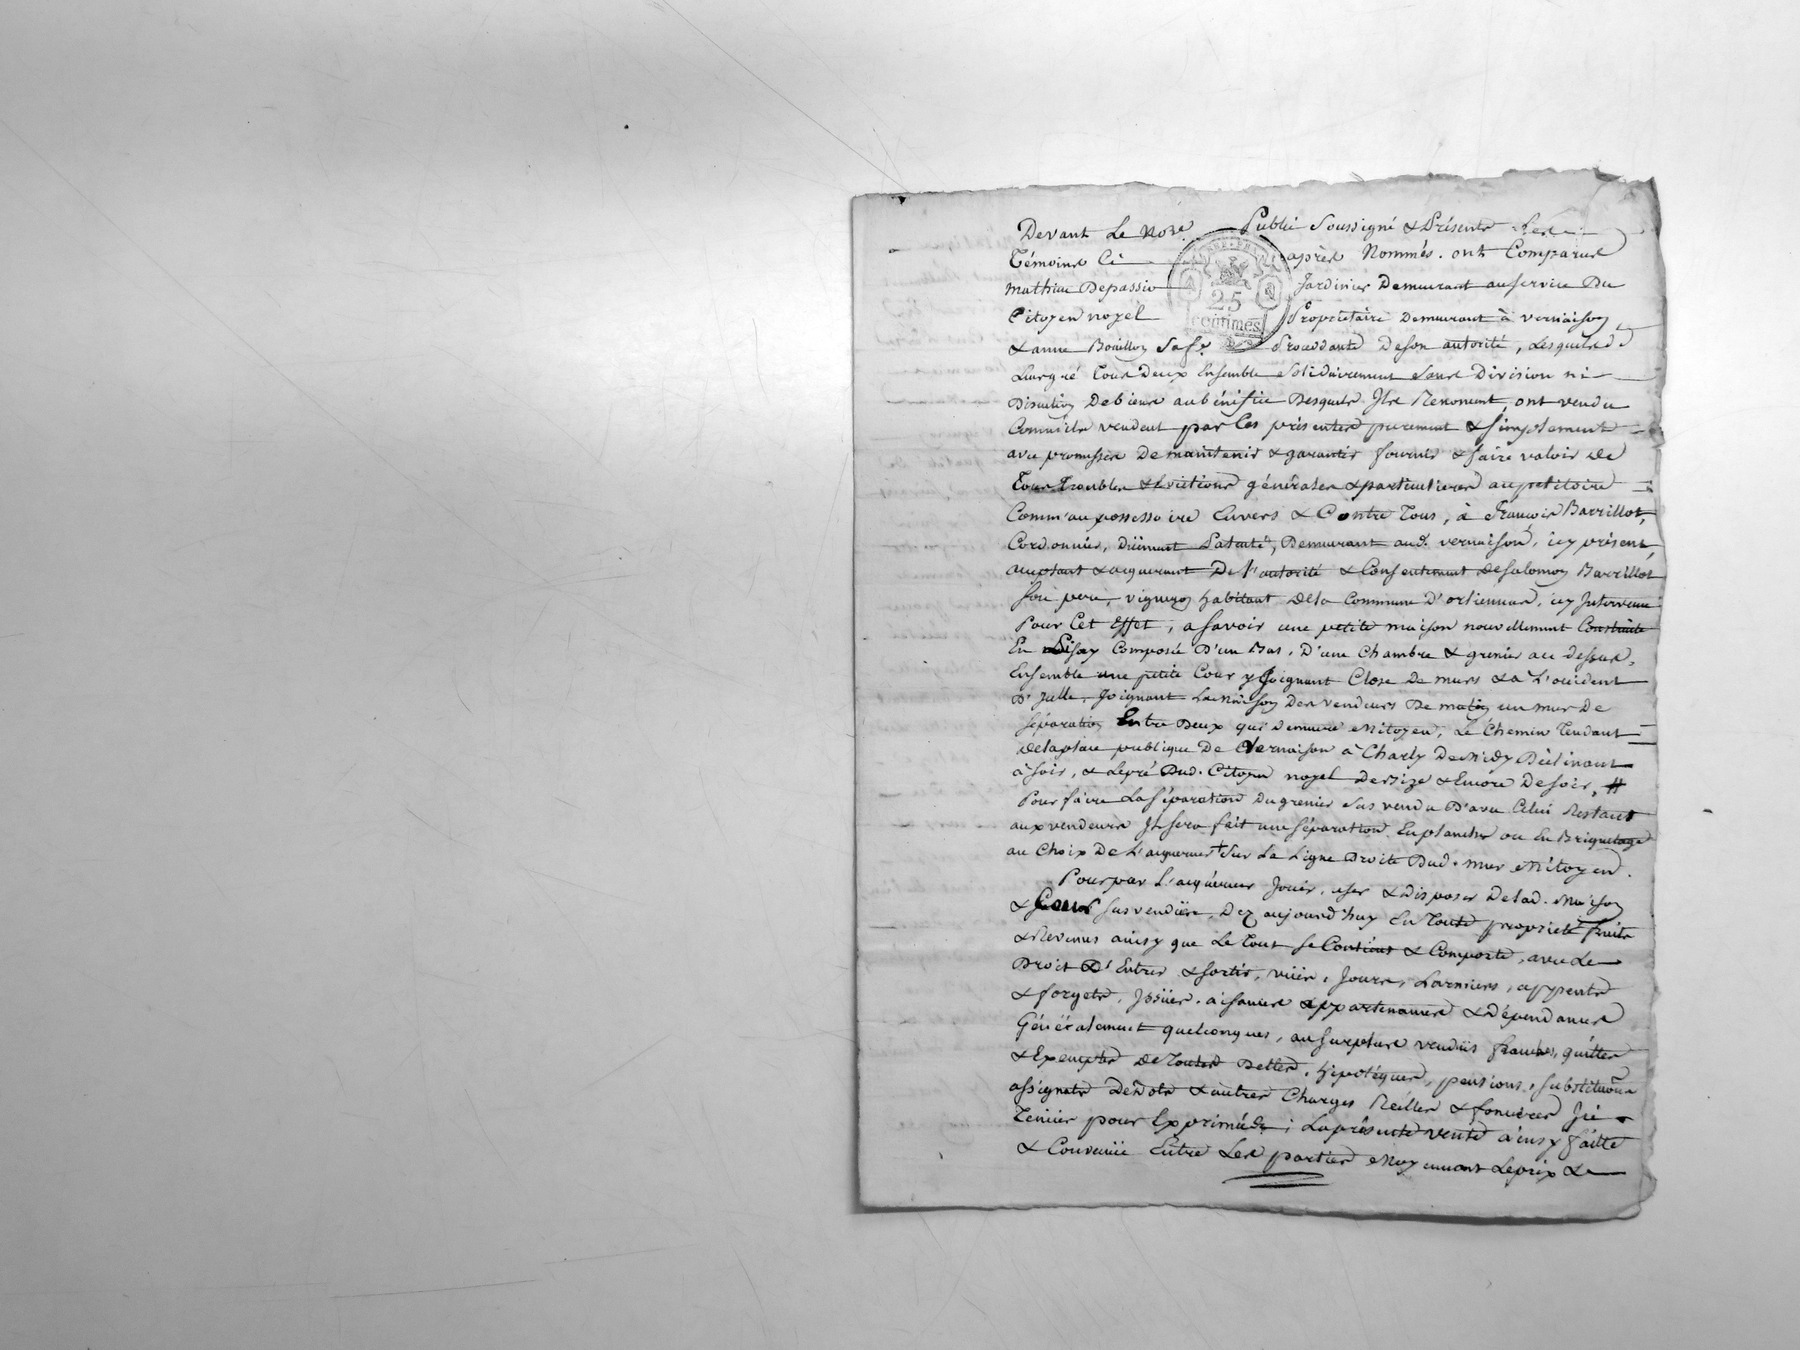 Devant Le Nore. Public Soussigné & Présents Les
Témoins Ci après Nommés. ont Comparus
Mathieu Depassio Jardinier Demeurant au service Du
Citoyen noyel Propriétaire Demeurant à vernaison
& anne Bouillon Sa fe. Procédante De son autorité, Lesquels
Leur gré Tous Deux Ensemble solidairement sans Division ni
Discution De biens au bénéfice Desquels Ils Renoncent, ont vendu
Comme ils vendent par Ces présentes purement & simplement
avec promesse De maintenir & garantir fournir & faire valoir de
Tous Troubles & évictions générales & particulieres au petitoire
Comm'au possessoire Envers & Contre Tous, à François Barrillot,
Cordonnier, Düement Patenté, Demeurant aud. vernaison, icy présent,
acceptant & acquerant De l'autorité & Consentement de Salomon Barrillot
son pere, vigneron habitant de la Commune D'orlienas, icy Intervenu
Pour Cet Effet, a savoir une petite maison nouvellement Construite
En Pisay Composée D'un Bas, D'une Chambre & grenier au dessus,
Ensemble une petite Cour y Joignant Close De murs & a L'occident
D'Icelle, Joignant La maison Des vendeurs De matin un mur De
séparation Entre Deux qui Demeure Mitoyen, Le Chemin Tendant
de la place publique De Vernaison à Charly De Midy Déclinant
à soir, & Le pré Dud. Citoyen noyel De bize & Encore De soir, #
Pour faire La séparation Du grenier sus vendu D'avec Celui Restant
aux vendeurs Il sera fait une séparation En planches ou En Briquetage
au Choix De L'acquereur + Sur La Ligne Droite Dud. mur Mitoyen.
Pour par L'acquéreur Jouir, user & Disposer De lad. Maison
& Cour sus vendües, Dez aujourd'huy En Toute propriété fruits
& Revenus ainsy que Le Tout se Contient & Comporte, avec Le
Droit D'Entrer & sortir, vües, Jours, Larmiers, appents
& forgets, Issües, aisances appartenances & Dépendances
Généralement quelconques, au surplus vendüs francs, quittes
& Exempts de Toutes Dettes, hipotéques, pensions, substitutions
assignats De dots & autres Charges Réelles & foncieres Icÿ
Tenües pour Exprimées; La présente vente ainsy faitte
& Convenüe Entre Les parties Moyennant Le prix De
RÉP. FRA.
25
centimes